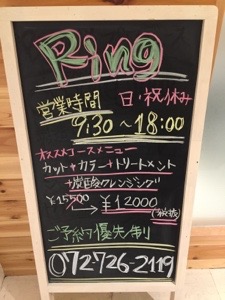 Ring
営業時間 日・祝休み
9:30〜18:00
オススメコースメニュー
カット+カラー+トリートメント
+炭酸クレンジング
¥15500
→¥12000
(税抜)
ご予約優先制
072-726-2119